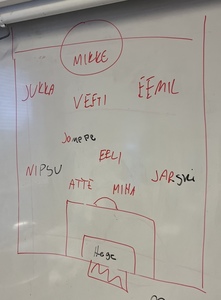 MIKKE
JUKKA
VEETI
EEMIL
Jomppe
EELI
NIPSU
JARSKI
ATTE
MIHA
Hoge